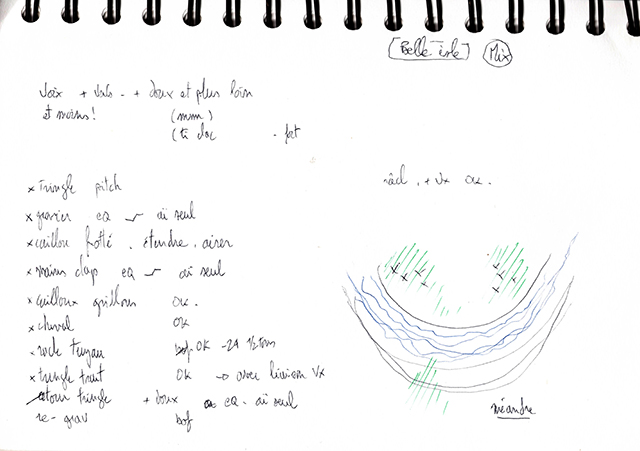 [Belle-isle] Mix
Voix + - + doux et plus loin
et moins! (mmm)
(ta clac - fort
+ Vx ok.
x tringle pitch
x gravier EQ aï seul
x caillou frotté . étendre . aérer
x mains clap EQ aï seul
x cailloux grillons ok.
x cheval ok
x tuyau bof OK -24 ½ tons
x tringle trait OK → avec liaison Vx
tringle + doux EQ - aï seul
re-grav bof
méandre